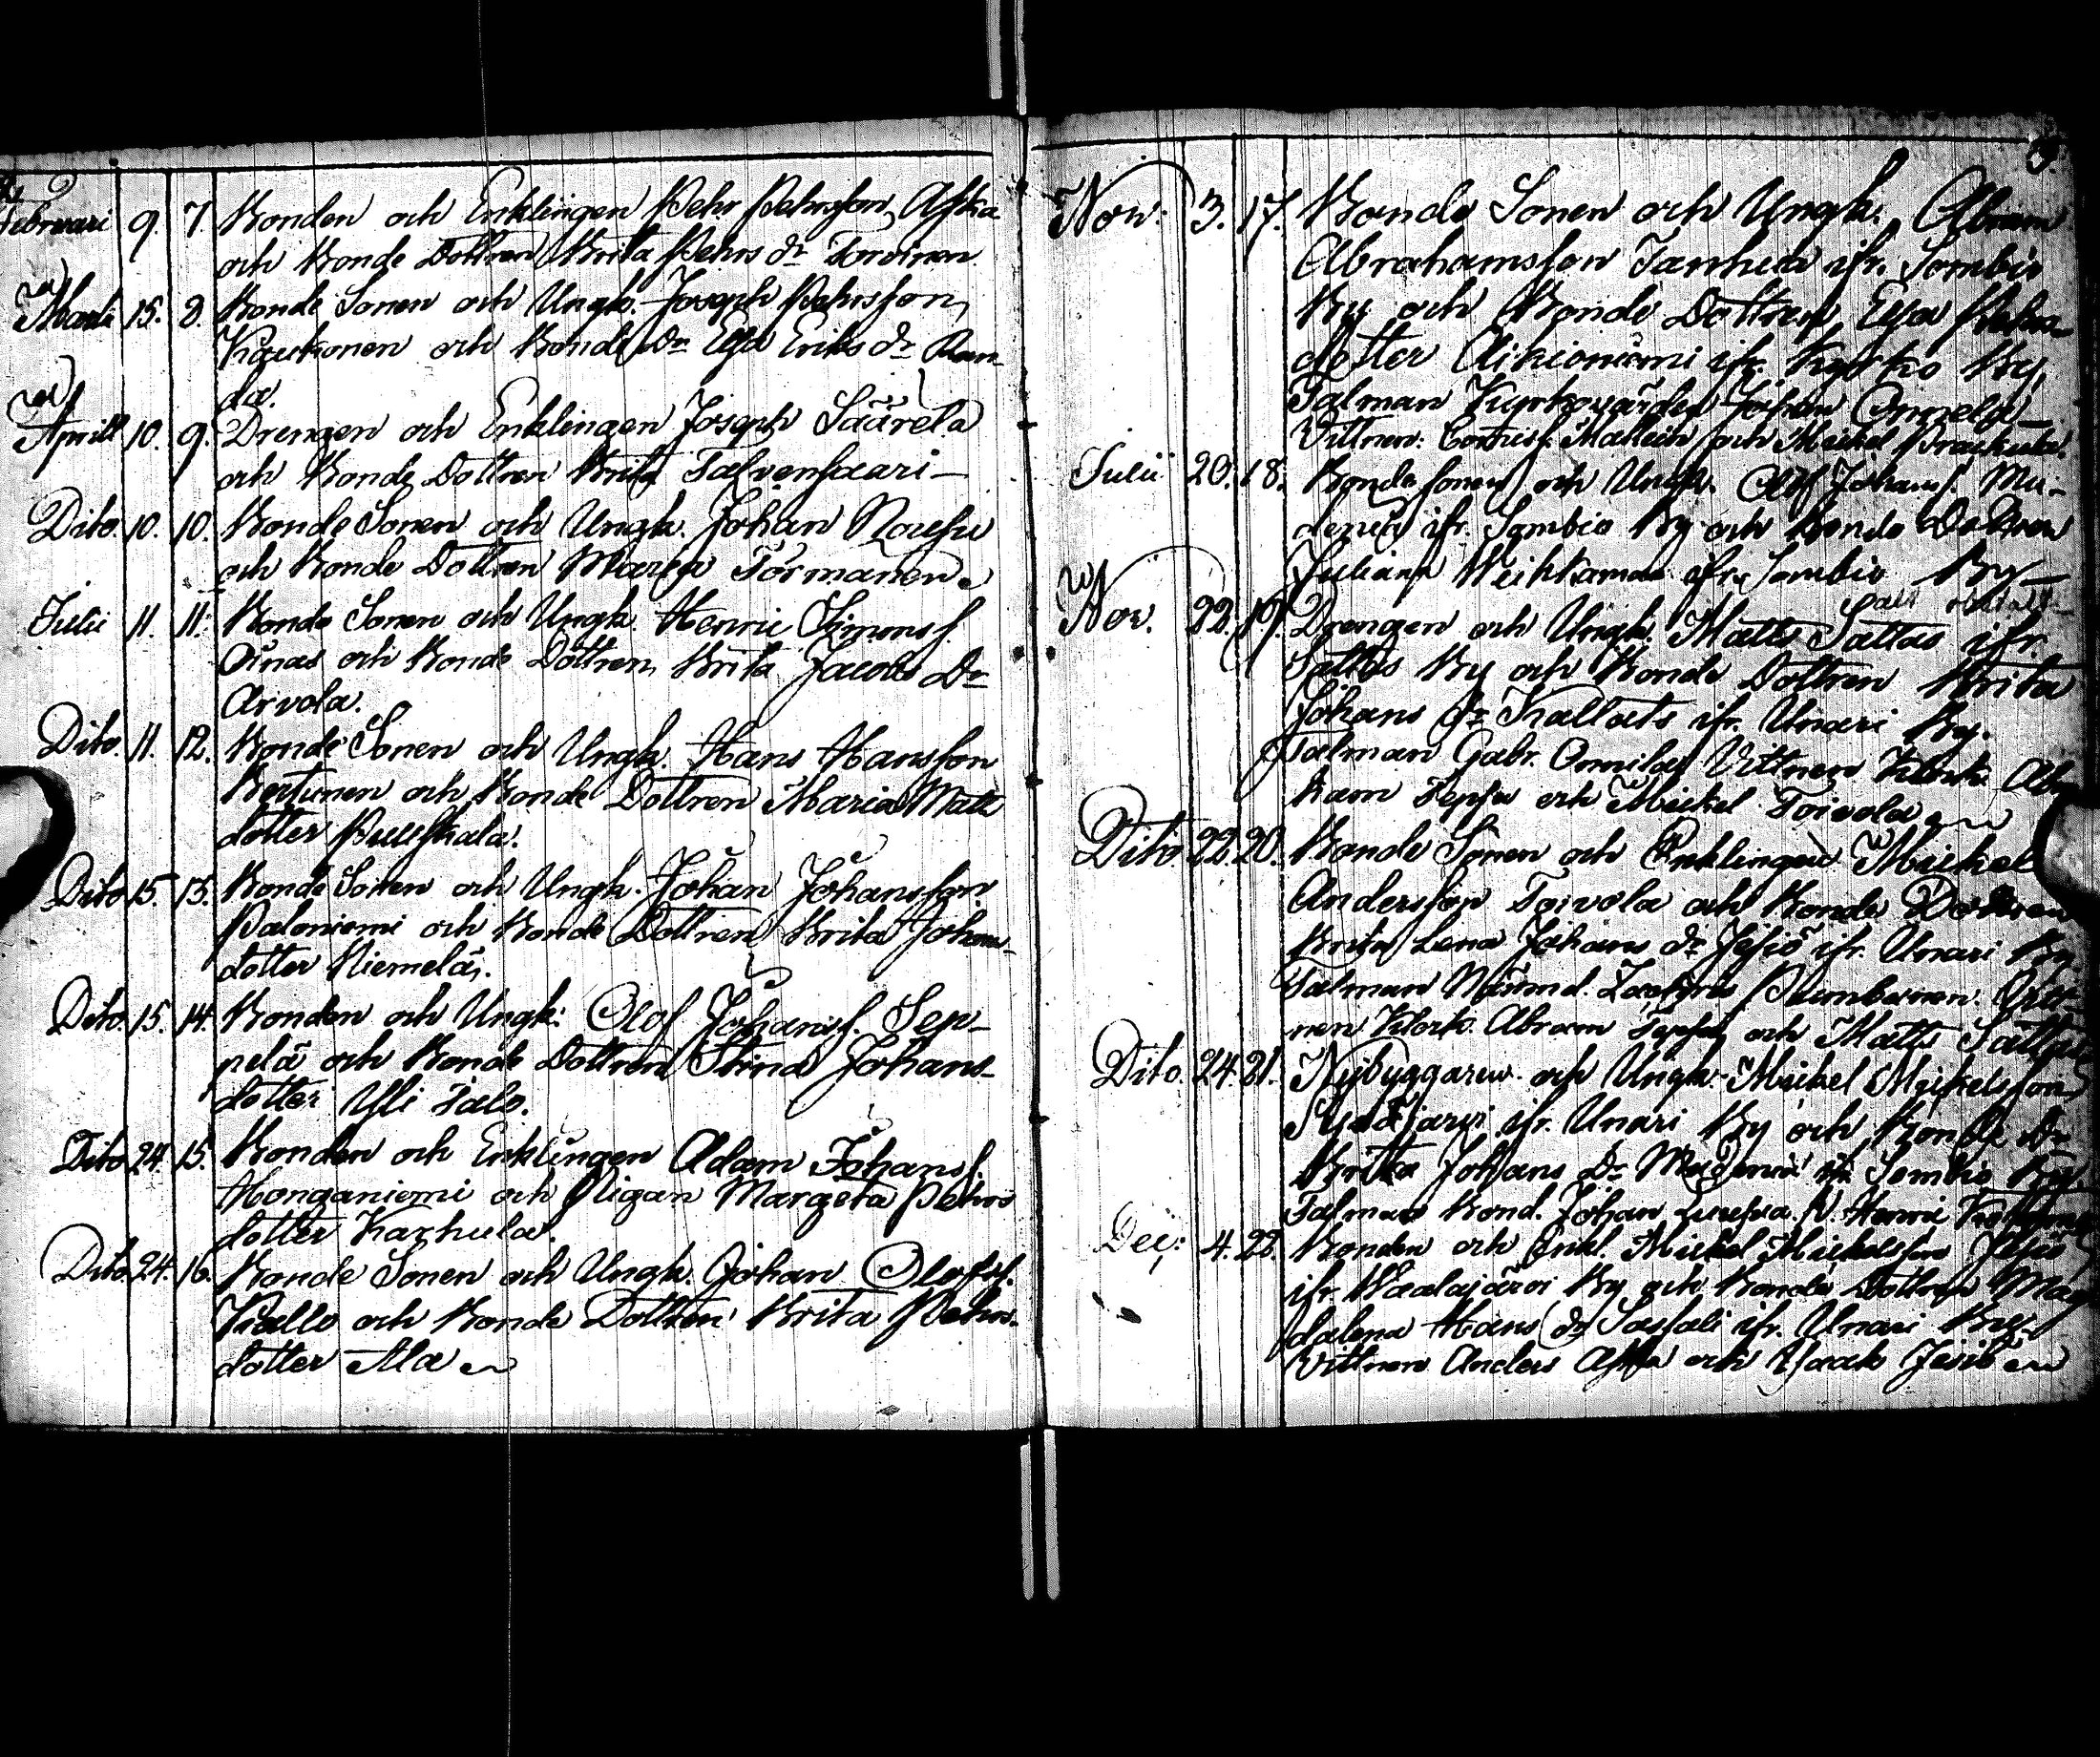 Februari 9. 7. Bonden och Enklingen Pehr Pehrsson Aska
och Bonde Dottren Brita Pehrs Dr Torvinen
Martii 15. 8. Bonde Sonen och Ungk. Joseph Pehrsson
Kaukonen och Bonde Dr Elsa Eriks Dr Ran-
da.
Aprill 10. 9. Drengen och Enklingen Joseph Säärela
och Bonde Dottren Brita Talvensaari
Dito. 10. 10. Bonde Sonen och Ungk. Johan Nousu
och Bonde Dottren Maria Törmänen
Julii 11. 11. Bonde Sonen och Ungk. Henric Simonss.
Oinas och Bonde Dottren Brita Jacobs Dr
Arvola.
Dito. 11. 12. Bonde Sonen och Ungk. Hans Hansson
Kertunen och Bonde Dottren Maria Matts
dotter Puljkala.
Dito 15. 13. Bonde Sonen och Ungk. Johan Johansson
Paloniemi och Bonde Dottren Brita Johans-
dotter Niemelä.
Dito. 15. 14. Bonden och Ungk: Olof Johanss. Sep-
pelä och Bonde Dottren Stina Johans-
dotter Yli Talo.
Dito 24. 15. Bonden och Enklingen Adam Johanss.
Honganiemi och Pigan Margeta Pehrs
dotter Karhula.
Dito. 24. 16. Bonde Sonen och Ungk. Johan Olofss.
Kallo och Bonde Dottren Brita Pehrs-
dotter Ala
3.
Nov: 3. 17. Bonde Sonen och Ungk. Abram
Abrahamsson Tanhua ifr. Sombio
By och Bonde Dottren Elsa Pehrs-
dotter Aikioniemi ifr. By,
Talman Kyrkovärden Johan Onnela
Vittnen: och Meikel
Julii 20. 18. Bonde sonen och Ungk. Olof Johans s. Mu-
denia ifr. Sombio By och Bonde Dottren
Juliana ifr. Sombio By
Nov. 22. 19. Drengen och Ungk. Matts Sattas ifr.
Sattas By och Bonde Dottren Brita
Johans Dr ifr. Unari By.
Talman Gabr. Onnila Vittnen Klock. Abra
ham Seppä och Mickel Toivola
Dito 22. 20. Bonde Sonen och Enklingen Mickel
Andersson Toivola och Bonde Dottren
Brita Lena Johans Dr Jesiö ifr. Unari By.
Talman Nämnd. Vitt-
nen Klock. Abram Seppä och Matts Sattas
Dito. 24. 21. Nybyggaren och Ungk. Mickel Mickelsson
ifr. Unari By och Bonde Dr
Britta Johans Dr Mudenia ifr Sombio By.
Talman Bond. Johan V. Henric
Dec: 4. 22. Bonden och Enkl. Mickel Mickelsson Jesiö
ifr. Waalajärvi By och Bonde Dottren Mag
dalena Hans Dr Sassali ifr. Unari By
Vittnen Anders Aska och Isaak Jesiö